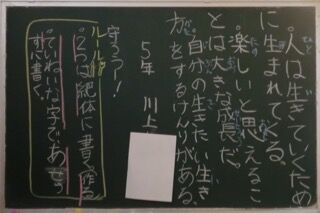 人は生きていくため
に生まれてくる。
楽しいと思えるこ
とは大きな成長だ。
自分の生きたい生き
方をするけんりがある。
5年 川上
守ろう！
ルール
2つは絶体に書く
ていねいな字で
ずに書く。